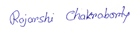 Rajarshi Chakraborty